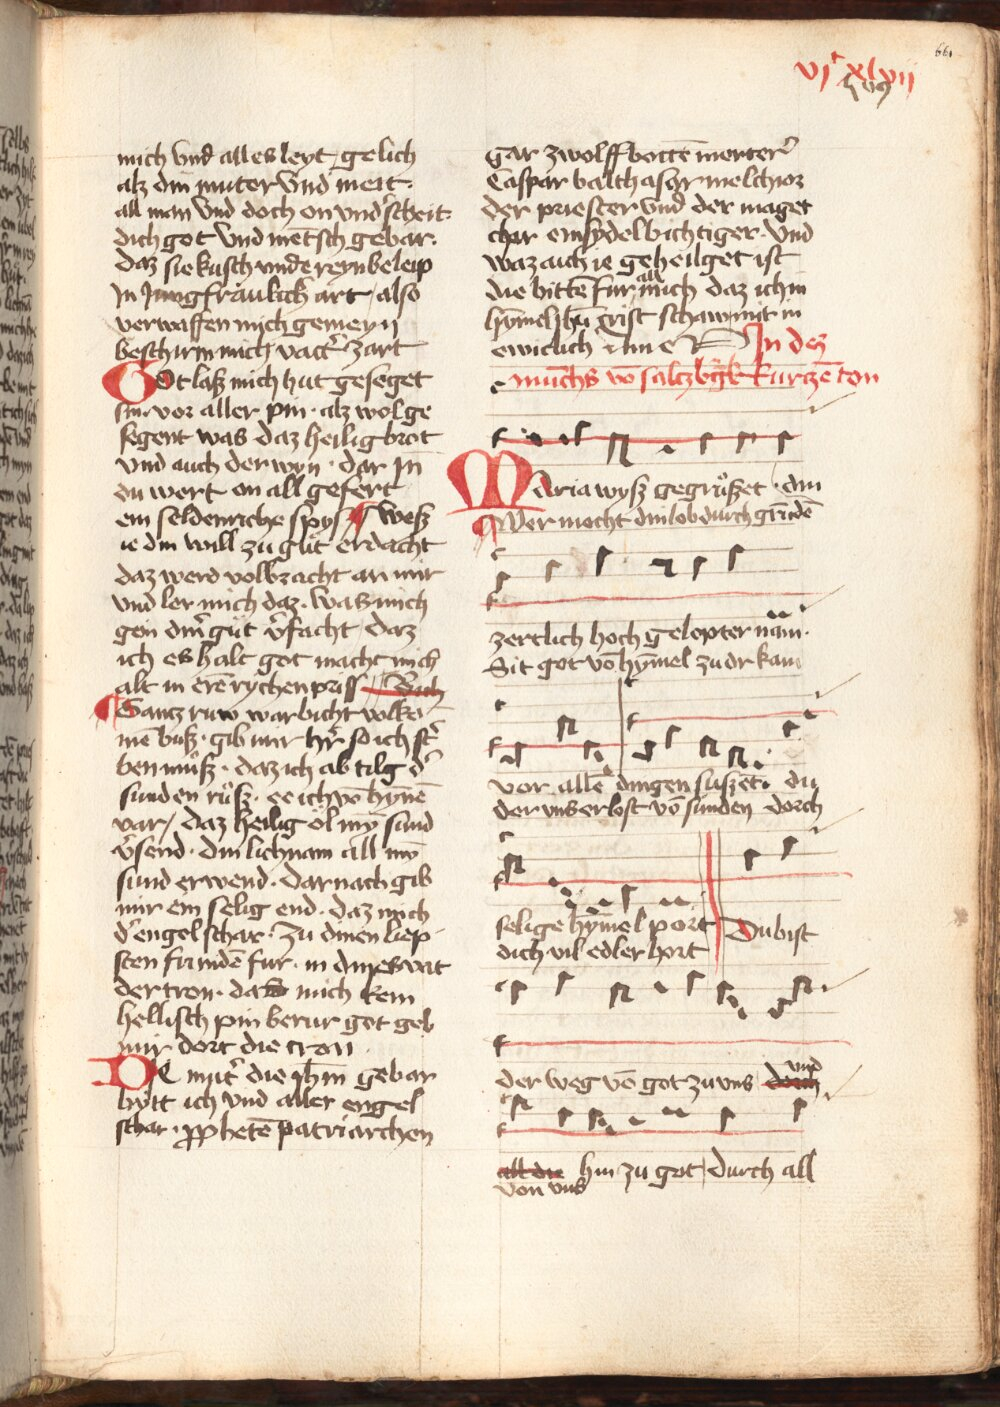 661
vjc xlvij
mich vnd alles leyt gelich
alz din muter vnd meit.
all man vnd doch on vnd'scheit.
dich got vnd metsch gebar.
daz sie kusch vnde reyn beleip
In Jungfraulich art / also
verwaffen mich gemeyn
beschirm mich vatt' zart
Got lasz mich hut geseget
sin vor aller pin. alz wol ge
segent was daz heilig brot
vnd auch der wyn. dar In
du wert on all gefert
ein seldenriche spys wesz
ie din will zu gut erdacht
daz werd volbracht an mir
vnd ler mich daz. was mich
gein din' gut v'facht daz
ich es halt got macht mich
alt in ere rychen priss
Gantz ruw war bicht volko
mē busz. gib mir h'r so ich st'
ben musz. daz ich ab tilg d'
sunden rusz. ee ich vō hynē
var / daz heilig ol my sund
v'send. din lichnam all my
sund erwend. darnach gib
mir ein selig end. daz mich
d' engel schar. zu dinen liep
sten frundē fur. in
der tron. daz mich kein
hellisch pin berur got geb
mir dort die cron
Die mut' die jhm gebar
bytt ich vnd aller engel
schar. prophetē patriarchen
gar zwolffbottē merter'
Caspar balthasar melchior
der priester vnd der maget
char einsydel bichtiger. vnd
waz auch ie geheilget ist
die bittē fur mich all daz ich in
hymel jhu crist schaw mit in
ewiclich Amen
In dez
munchs vō salczburgk kurczē ton
Maria wysz gegruszet. din
Wer mocht din lob durch grudē
zertlich hoch gelopter nam.
Sit got vō hymel zu dr kam
vor allē dingen suszet. du
der vns erlost vō sunden dorch
selige hymel port Du bist
dich vil edler hort
der weg vō got zu vns dorch vnd
all die hin zu got / durch all
von vns